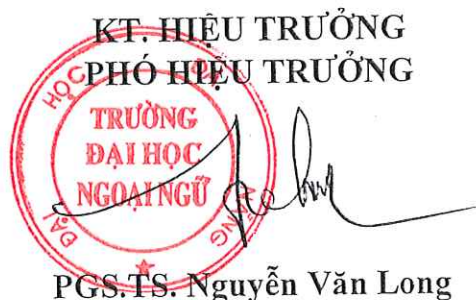 KT. HIỆU TRƯỞNG
PHÓ HIỆU TRƯỞNG
TRƯỜNG
ĐẠI HỌC
NGOẠI NGỮ
ĐẠI HỌC
PGS.TS. Nguyễn Văn Long